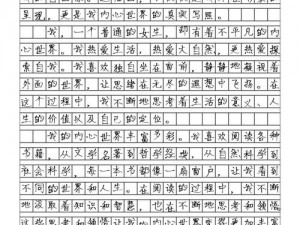 呈现，更是我内心世界的真实写照。
我，一个普通的女生，却有着不平凡的内
心世界。我热爱生活，热爱大自然，更热爱探
索自我。我喜欢独自坐在窗前，静静地凝视着
外面的世界，让思绪在无尽的遐想中飞扬。在
这个过程中，我不断地思考着生活的意义、人
生的价值以及自己的定位。
我的内心世界丰富多彩。我喜欢阅读各种
书籍，从文学名著到哲学经典，从自然科学到
社会科学，每一本书都像一扇窗户，让我看到
不同的世界和人生。在阅读的过程中，我不断
地汲取着知识和智慧，也在不断地思考和领悟
这些思考和领悟让我的内心世界变得更加丰富